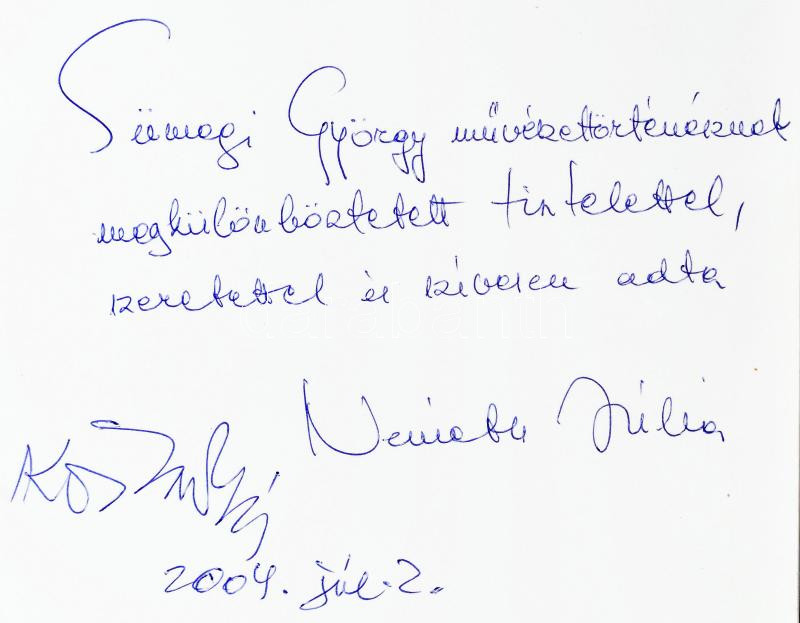 Sümegi György művészettörténésznek
megkülönböztetett tisztelettel,
szeretettel és szívesen adta
Németh Júlia
2004. júl. 2.